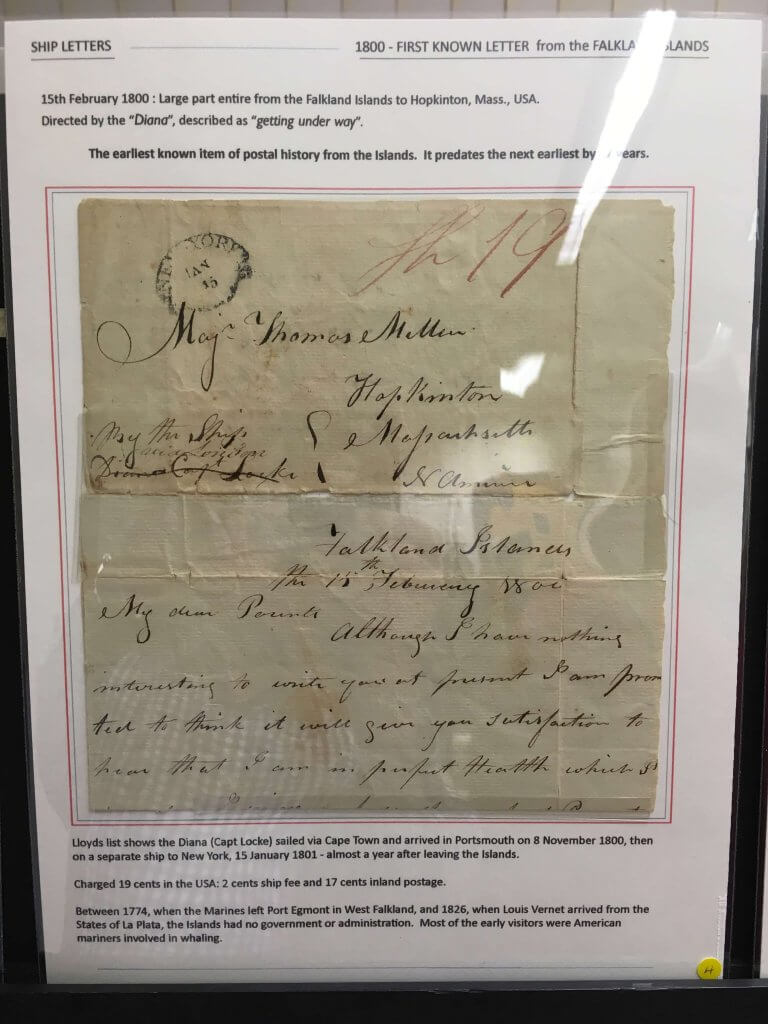 SHIP LETTERS
1800 - FIRST KNOWN LETTER from the FALKLA LANDS
15th February 1800 : Large part entire from the Falkland Islands to Hopkinton, Mass., USA.
Directed by the “Diana”, described as “getting under way”.
The earliest known item of postal history from the Islands. It predates the next earliest by years.
NEW YORK
JAN
15
Sh 19
Majr Thomas Mellen
Hopkinton
Massachsetts
N America
Pay the Ship
via London
Diana Capt Locke
Falkland Islands
the 15th February 1800
My dear Parents
Although I have nothing
interesting to write you at present I am prom
ted to think it will give you satisfaction to
hear that I am in perfect Health which I
Lloyds list shows the Diana (Capt Locke) sailed via Cape Town and arrived in Portsmouth on 8 November 1800, then
on a separate ship to New York, 15 January 1801 - almost a year after leaving the Islands.
Charged 19 cents in the USA: 2 cents ship fee and 17 cents inland postage.
Between 1774, when the Marines left Port Egmont in West Falkland, and 1826, when Louis Vernet arrived from the
States of La Plata, the Islands had no government or administration. Most of the early visitors were American
mariners involved in whaling.
4